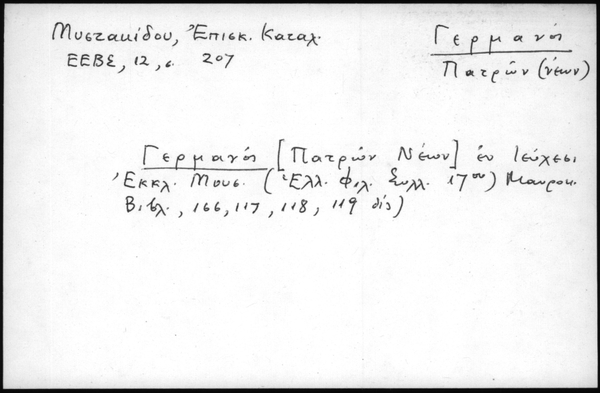 Μυστακίδου, Ἐπισκ. Καταλ.
ΕΕΒΣ, 12, σ. 207
Γερμανός
Πατρῶν (νέων)
Γερμανός [Πατρῶν Νέων] ἐν τεύχεσι
Ἐκκλ. Μουσ. (Ἑλλ. Φιλ. Συλλ. 17ου) Μαυροκ.
Βιβλ., 166, 117, 118, 119 δίς)